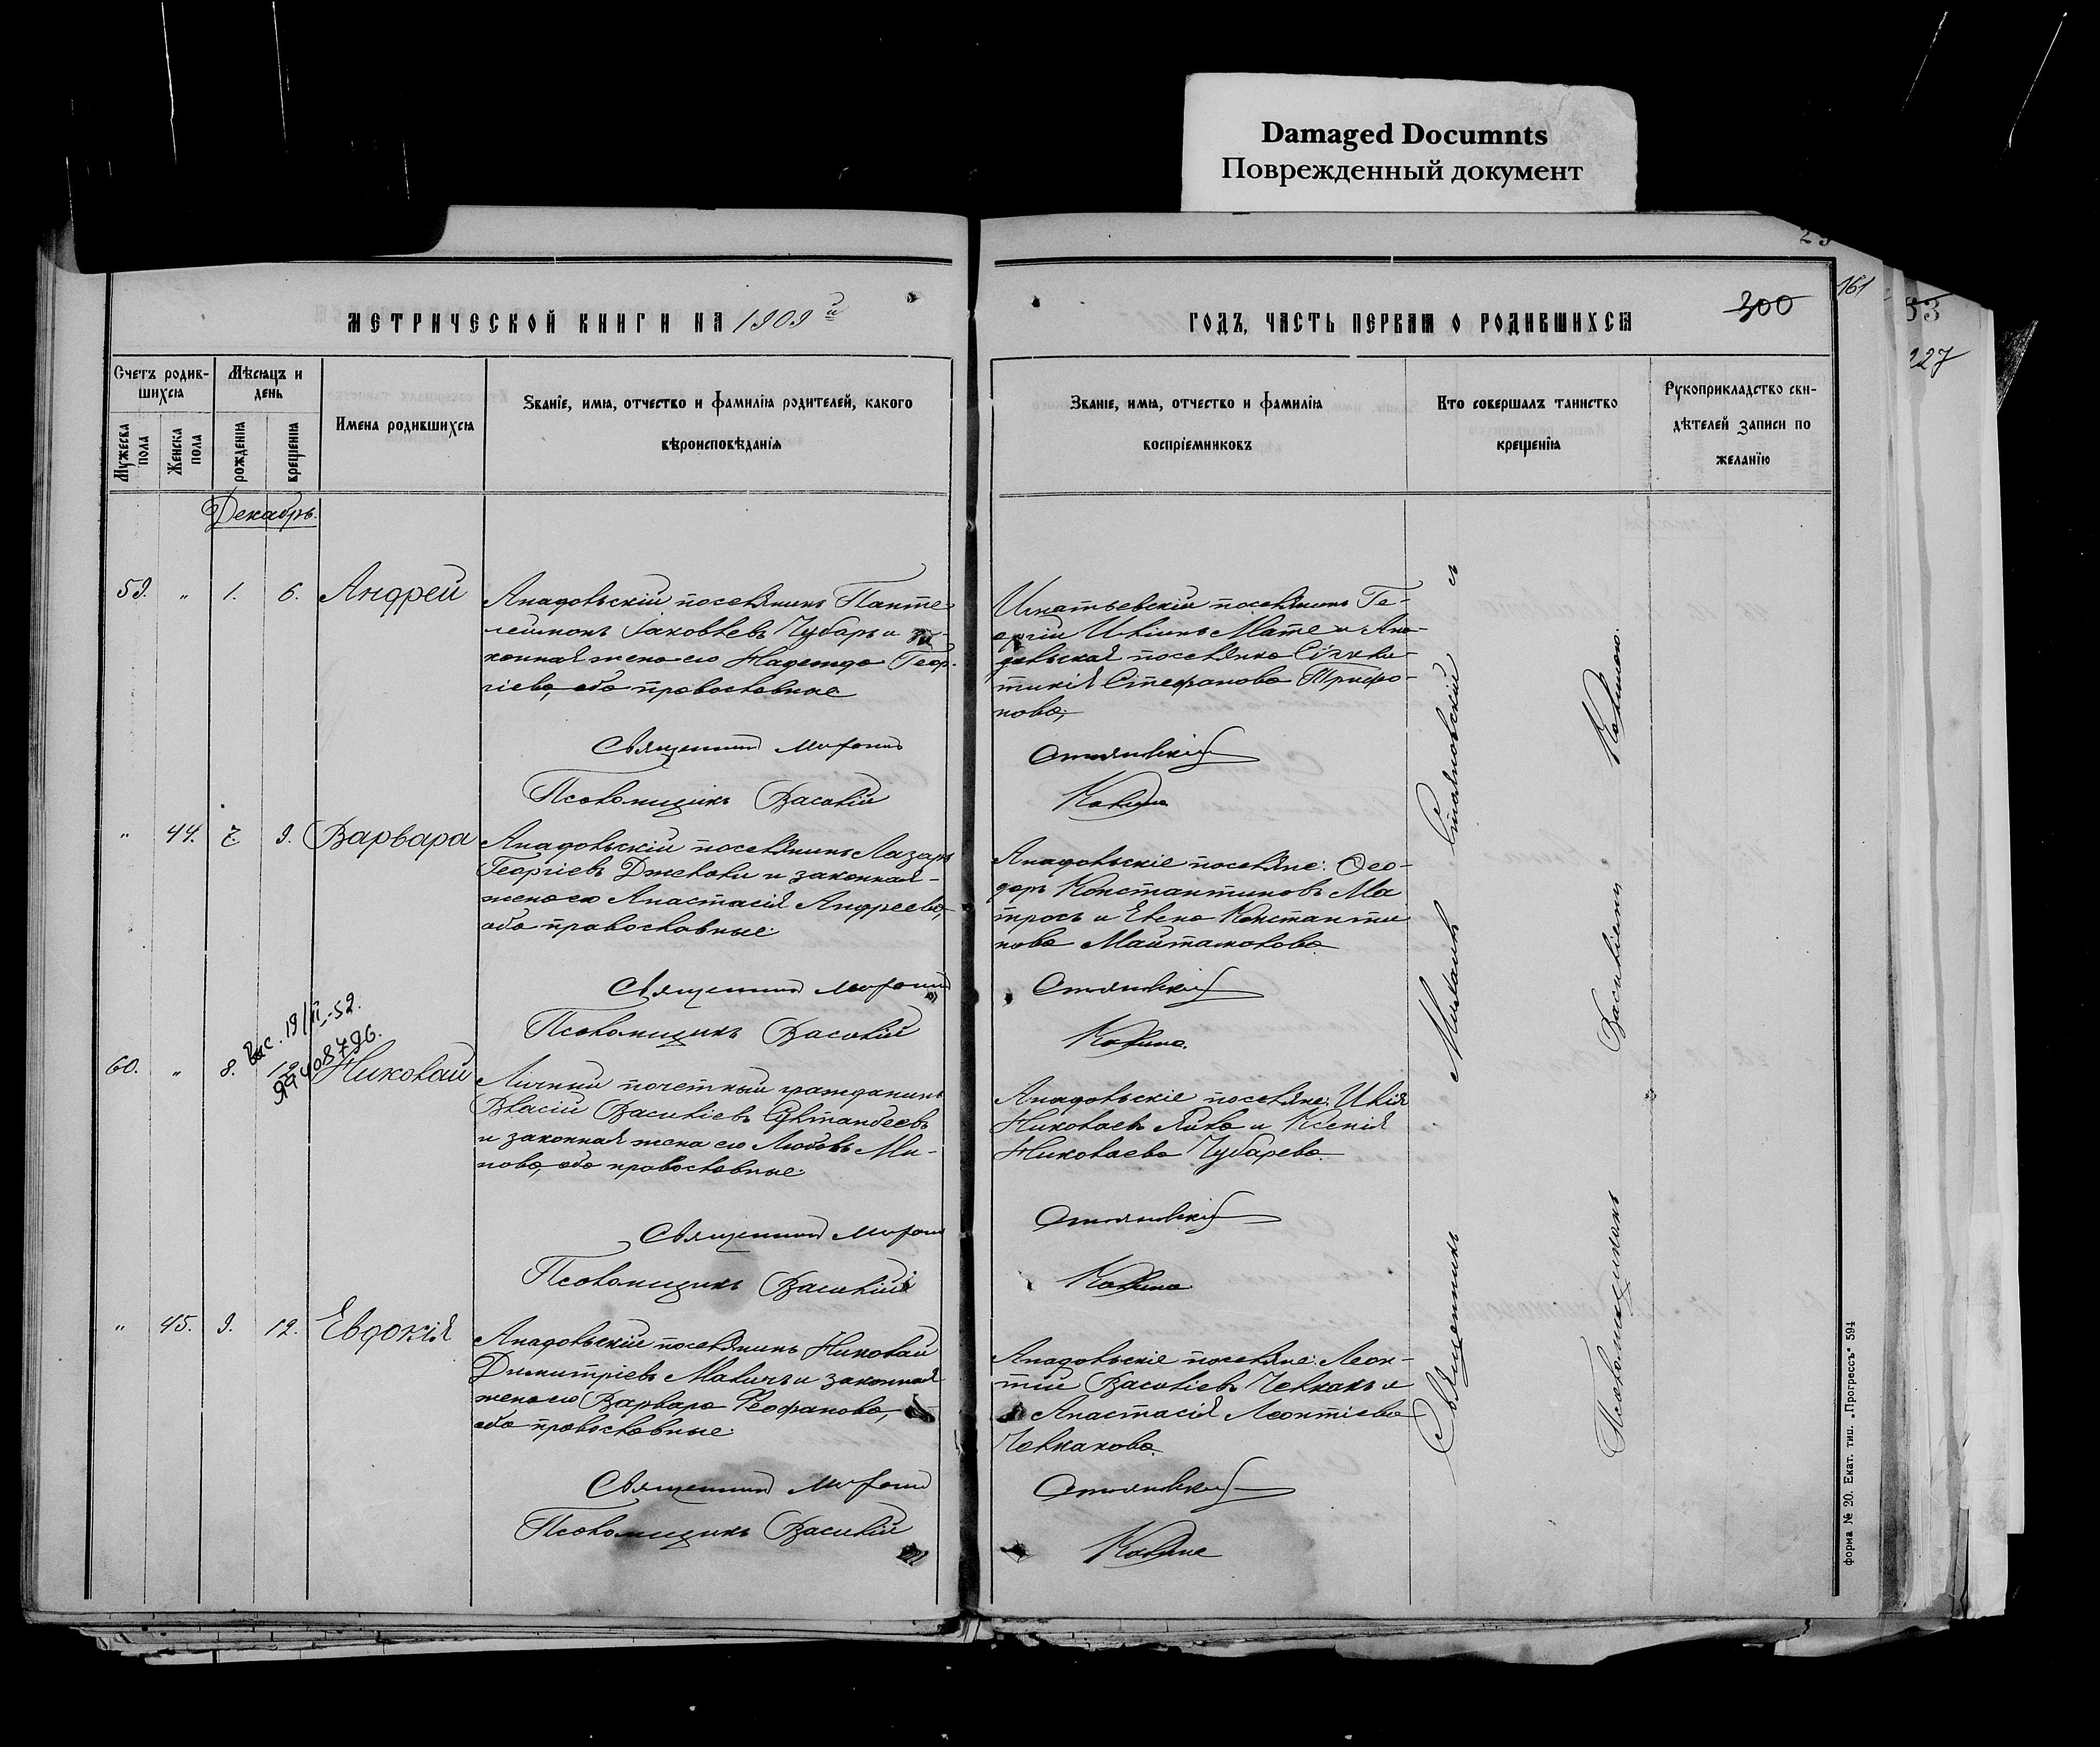 Damaged Documnts
Поврежденный документ
МЕТРИЧЕСКОЙ КНИГИ НА 1909й
ГОДЪ, ЧАСТЬ ПЕРВАЯ О РОДИВШИХСЯ
300
161
53
227
Счетъ родив-
шихся
Мужеска пола
Женска пола
Мѣсяцъ и
день
рожденія
крещенія
Имена родившихся
Званіе, имя, отчество и фамилія родителей, какого
вѣроисповѣданія
Званіе, имя, отчество и фамилія
воспріемниковъ
Кто совершалъ таинство
крещенія
Рукоприкладство сви-
дѣтелей записи по
желанію
Декабрь.
59. " 1. 6. Андрей
Анадольскій поселянинъ Панте-
леимонъ Іаковлевъ Чубарь и за-
конная жена его Надежда Геор-
гіева, оба православные
Священник
Псаломщикъ Василій
Игнатьевскій поселянинъ Ге-
оргій Иліинъ Мате и Ана-
дольская поселянка Сѵнкли-
тикія Стефанова Трифо-
нова;
Стояновскій
Калина
" 44. 7. 9. Варвара
Анадольскій поселянинъ Лазарь
Георгіевъ Джелали и законная
жена его Анастасія Андреева,
оба православные.
Священник
Псаломщикъ Василій
Анадольскіе поселяне: Ѳео-
доръ Константиновъ Ма
трось и Елена Константи
нова Майтамалова.
Стояновскій
Калина.
60. " 8. Николай
19/II-52.
Личный почетный гражданинъ
Власій Василіевъ Султанбеевъ
и законная жена его Любовь Ми-
нова, оба православные.
Священник
Псаломщикъ Василій
Анадольскіе поселяне: Илія
Николаевъ Яйло и Ксенія
Николаева Чубарева.
Стояновскій
Калина
" 45. 9. 12. Евдокія
Анадольскій поселянинъ Николай
Димитріевъ Маличъ и законная
жена его Варвара Ѳеофанова,
оба православные.
Священник
Псаломщикъ Василій
Анадольскіе поселяне: Леон-
тій Василіевъ Челкакъ и
Анастасія Леонтіева
Челкакова.
Стояновскій
Калина
Священникъ Михаилъ Стояновскій съ
Псаломщикомъ Василіемъ Калиною.
форма № 20. Екат. тип. „Прогрессъ" 594